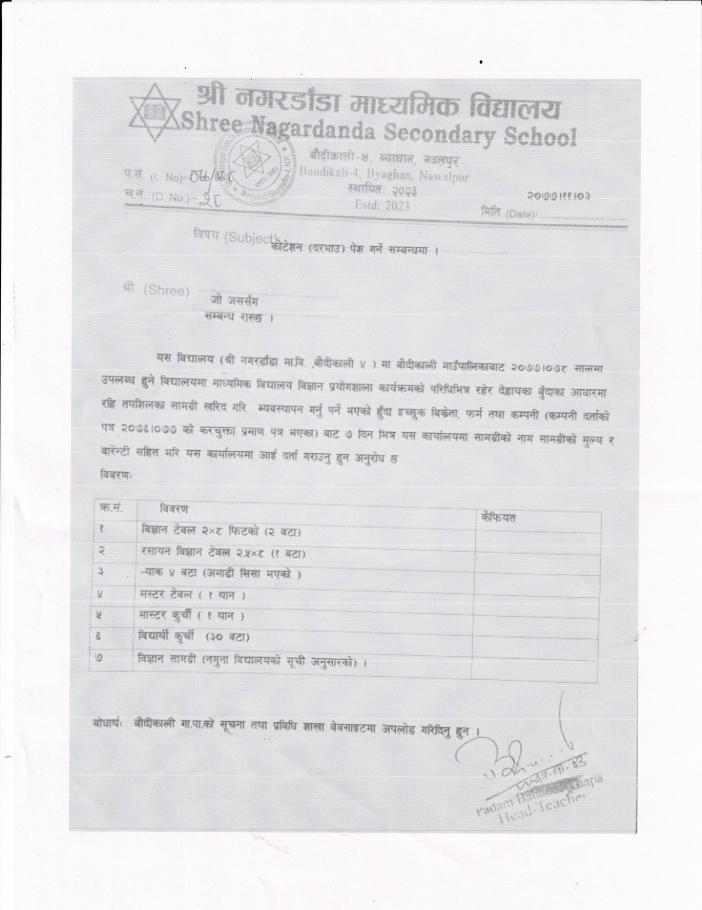 श्री नगरडाँडा माध्यमिक विद्यालय
Shree Nagardanda Secondary School
बौदीकाली-४, ब्याघान, नवलपुर
Baudikali-4, Byaghan, Nawalpur
स्थापितः २०२३
Estd: 2023
प.सं. (I. No):-
च.नं. (D. No.):-
२०७७।११।०३
मिति (Date):
विषय (Subject): कोटेशन (दरभाउ) पेश गर्ने सम्बन्धमा ।
श्री (Shree) जो जससँग
सम्बन्ध राख्छ ।
यस विद्यालय (श्री नगरडाँडा मा.वि. बौदीकाली ४ ) मा बौदीकाली गाउँपालिकाबाट २०७७।०७८ सालमा
उपलब्ध हुने विद्यालयमा माध्यमिक विद्यालय विज्ञान प्रयोगशाला कार्यक्रमको परिधिभित्र रहेर देहायका बुँदाका आधारमा
रहि तपशिलका सामग्री खरिद गरि ब्यवस्थापन गर्नु पर्ने भएको हुँदा इच्छुक बिक्रेता, फर्म तथा कम्पनी (कम्पनी दर्ताको
पत्र २०७६।०७७ को करचुक्ता प्रमाण पत्र भएका) बाट ७ दिन भित्र यस कार्यालयमा सामग्रीको नाम सामग्रीको मुल्य र
वारेन्टी सहित भरि यस कार्यालयमा आई दर्ता गराउनु हुन अनुरोध छ
विवरणः
क्र.सं. विवरण कैफियत
१ विज्ञान टेबल २×८ फिटको (२ वटा)
२ रसायन विज्ञान टेबल २.५×८ (१ वटा)
३ -याक ४ वटा (अगाडी सिसा भएको )
४ मस्टर टेवल ( १ थान )
५ मास्टर कुर्ची ( १ थान )
६ विद्यार्थी कुर्ची (३० वटा)
७ विज्ञान सामग्री (नमुना विद्यालयको सूची अनुसारको) ।
बोधार्थः बौदीकाली गा.पा.को सूचना तथा प्रविधि शाखा वेवसाइटमा अपलोड गरिदिनु हुन ।
Padam Bahadur Thapa
Head-Teacher